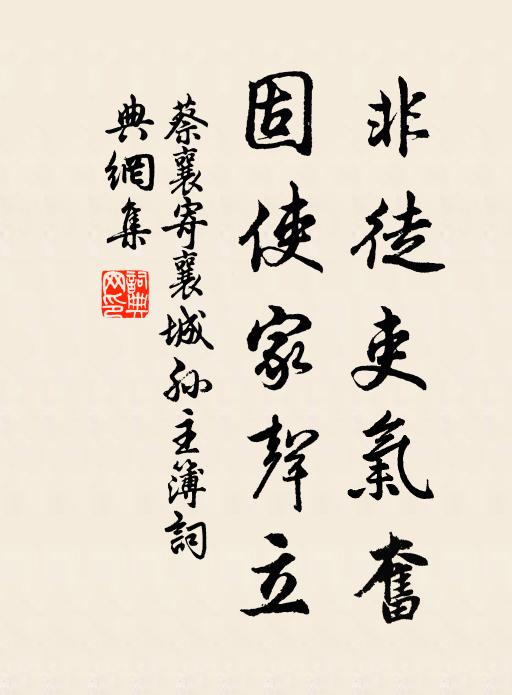 非徒吏氣奮
固使家聲立
蔡襄寄襄城孙主簿詞
典網集
詞典
网印